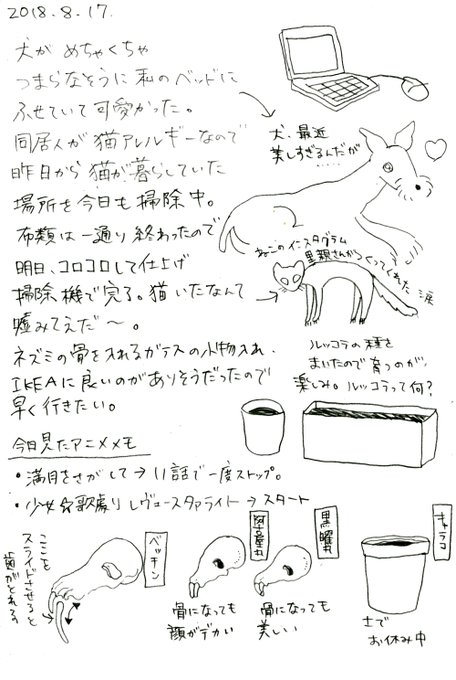 2018.8.17.
犬が めちゃくちゃ
つまらなそうに 私のベッドに
ふせていて可愛かった。
同居人が猫アレルギーなので
昨日から猫が暮らしていた
場所を今日も掃除中。
布類は一通り終わったので
明日、コロコロして仕上げ
掃除機で完了。猫いたなんて
嘘みてえだ〜。
ネズミの骨を入れるガラスの小物入れ、
IKEAに良いのがありそうだったので
早く行きたい。
犬、最近
美しすぎるんだが
……
ねこのインスタグラム
里親さんがつくってくれた
涙
ルッコラの種を
まいたので育つのが
楽しみ。ルッコラって何?
今日見たアニメメモ
・満月をさがして→11話で一度ストップ。
・少女☆歌劇レヴュースタァライト→スタート
ベッチン
ここを
スライドさせると
歯がとれる
骨になっても
顔がデカい
黒曜丸
骨になっても
美しい
キャラコ
土で
お休み中